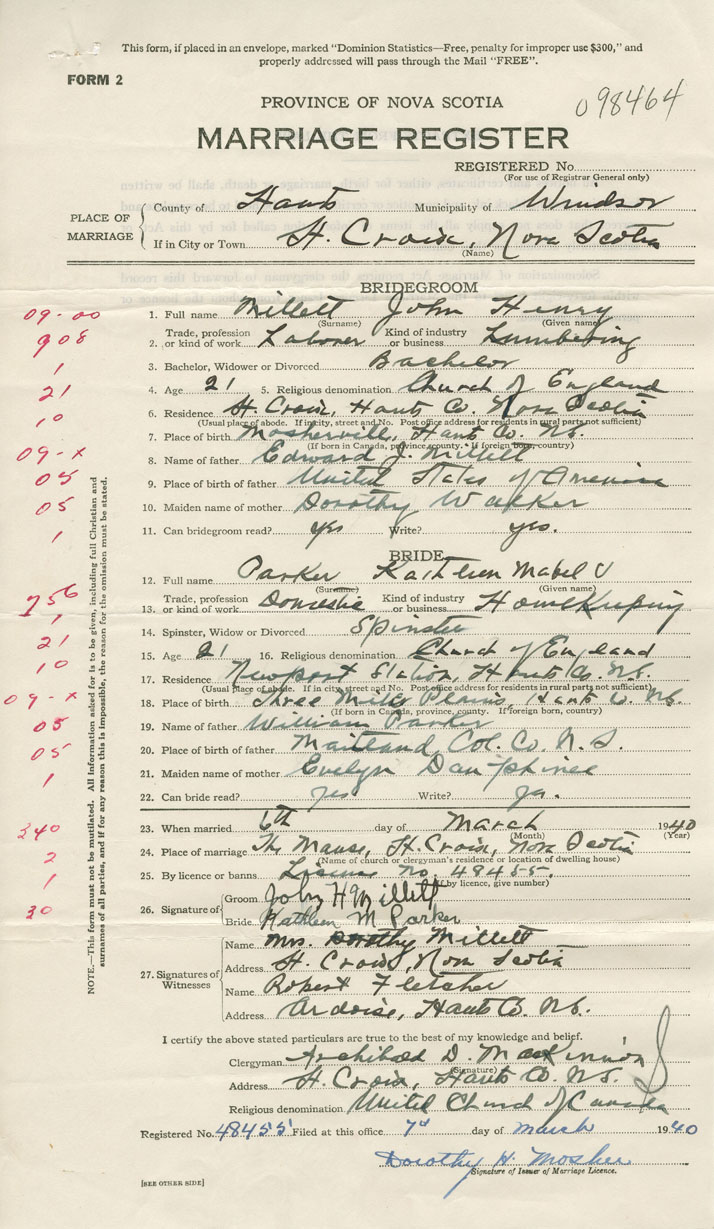 This form, if placed in an envelope, marked "Dominion Statistics—Free, penalty for improper use $300," and
properly addressed will pass through the Mail "FREE".
FORM 2
098464
PROVINCE OF NOVA SCOTIA
MARRIAGE REGISTER
REGISTERED No.
(For use of Registrar General only)
PLACE OF MARRIAGE
County of Hants Municipality of Windsor
If in City or Town St. Croix, Nova Scotia
(Name)
BRIDEGROOM
09-00
1. Full name Millett John Henry
(Surname) (Given name)
908
2. Trade, profession or kind of work Laborer Kind of industry or business Lumbering
1
3. Bachelor, Widower or Divorced Bachelor
21
4. Age 21 5. Religious denomination Church of England
10
6. Residence St. Croix, Hants Co. Nova Scotia
(Usual place of abode. If in city, street and No. Post office address for residents in rural parts not sufficient)
7. Place of birth Mosherville, Hants Co. N.S.
(If born in Canada, province, county. If foreign born, country)
09-x
8. Name of father Edward J. Millett
05
9. Place of birth of father United States of America
05
10. Maiden name of mother Dorothy Walker
1
11. Can bridegroom read? yes Write? yes.
BRIDE
12. Full name Parker Kathleen Mabel
(Surname) (Given name)
756
13. Trade, profession or kind of work Domestic Kind of industry or business HomeKeeping
1
14. Spinster, Widow or Divorced Spinster
21
15. Age 21 16. Religious denomination Church of England
10
17. Residence Newport Station, Hants Co. N.S.
(Usual place of abode. If in city, street and No. Post office address for residents in rural parts not sufficient)
09-x
18. Place of birth Three Mile Plains, Hants Co. N.S.
(If born in Canada, province, county. If foreign born, country)
05
19. Name of father William Parker
05
20. Place of birth of father Maitland, Col. Co. N.S.
1
21. Maiden name of mother Evelyn Dauphinee
22. Can bride read? yes Write? yes.
340
23. When married 6th day of March 1940
(Month) (Year)
2
24. Place of marriage The Manse, St. Croix, Nova Scotia
(Name of church or clergyman's residence or location of dwelling house)
1
25. By licence or banns License No. 48455.
(If by licence, give number)
30
26. Signature of
Groom John H Millett
Bride Kathleen M Parker
27. Signatures of Witnesses
Name Mrs. Dorothy Millett
Address St. Croix, Nova Scotia
Name Robert Fletcher
Address Ardoise, Hants Co. N.S.
I certify the above stated particulars are true to the best of my knowledge and belief.
Clergyman Archibald D. MacKinnon
(Signature)
Address St. Croix, Hants Co. N.S.
Religious denomination United Church of Canada
Registered No. 48455 Filed at this office 7th day of March 1940
Dorothy H. Mosher
Signature of Issuer of Marriage Licence.
[SEE OTHER SIDE]
NOTE.—This form must not be mutilated. All information asked for is to be given, including full Christian and
surnames of all parties, and if for any reason this is impossible, the reason for the omission must be stated.